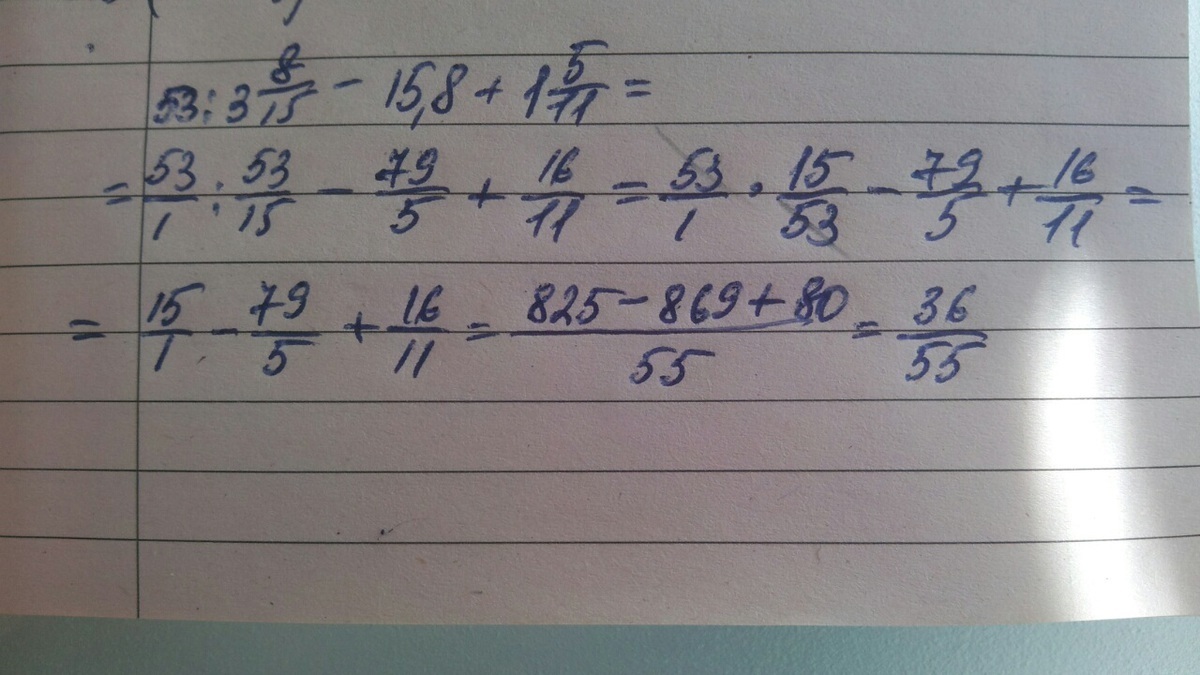 53 : 3 8/15 - 15,8 + 1 5/11 =
= 53/1 : 53/15 - 79/5 + 16/11 = 53/1 · 15/53 - 79/5 + 16/11 =
= 15/1 - 79/5 + 16/11 = (825 - 869 + 80)/55 = 36/55